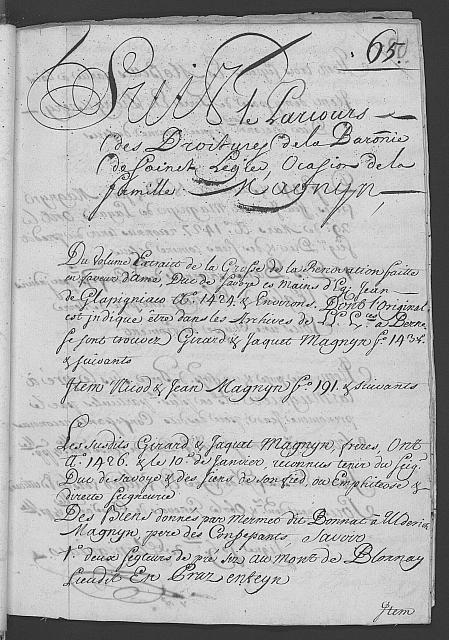 65.
Suit le Parcours
des Droitures de la Baronie
de Soinct Legier, Ocasion de la
famille Magnyn,
Du volume Extrait de la Grosse de la Renovation faitte
en faveur d'Amé Duc de Savoye es mains d'Eg. Jean
de Glapigniaco A.º 1424. & Environs. Dont l'Original
est indiqué être dans les Archives de LL. EEces à Berne
se sont trouver Girard & Jaquet Magnyn fº. 143.
& suivants
Item Nicod & Jean Magnyn fº. 191. & suivants
Les susdits Girard & Jaquet Magnyn, freres, Ont
A.º 1426. & le 10.e de Janvier, reconnus tenir du Seigr.
Duc de Savoye & des siens de son fied, ou Emphiteose &
directe Seigneurie
Des Biens donnés par Mermet dit Bonnat à Ulderic
Magnyn, pere des Confessants, Savoir
1º. deux Seyteurs de pré sis au mont de Blonay
Lieudit En Praz enteyn
Item